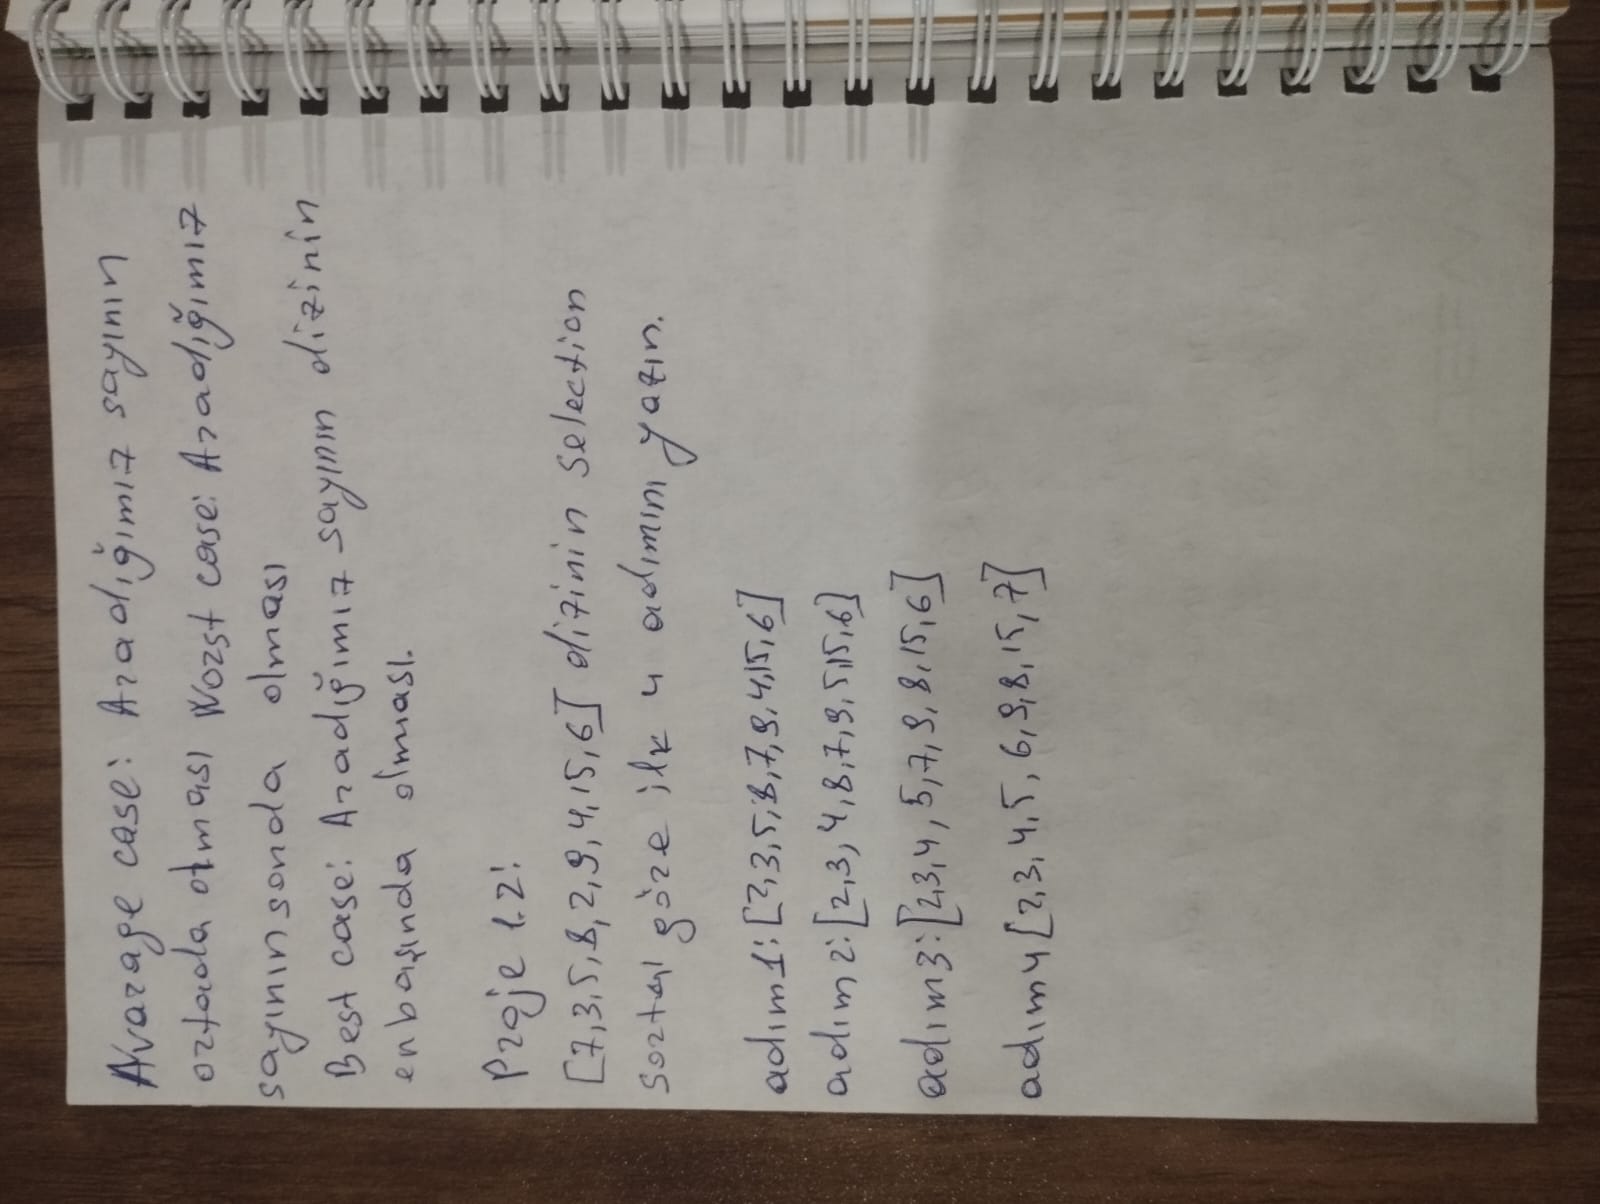 Avarage case: Aradığımız sayının
ortada olması Worst case: Aradığımız
sayının sonda olması
Best case: Aradığımız sayının dizinin
en başında olması.
Proje 1.2:
[7,3,5,8,2,9,4,15,6] dizinin selection
sorta göre ilk 4 adımını yazın.
adım1:[2,3,5,8,7,9,4,15,6]
adım2:[2,3,4,8,7,9,5,15,6]
adım3:[2,3,4,5,7,9,8,15,6]
adım4[2,3,4,5,6,9,8,15,7]